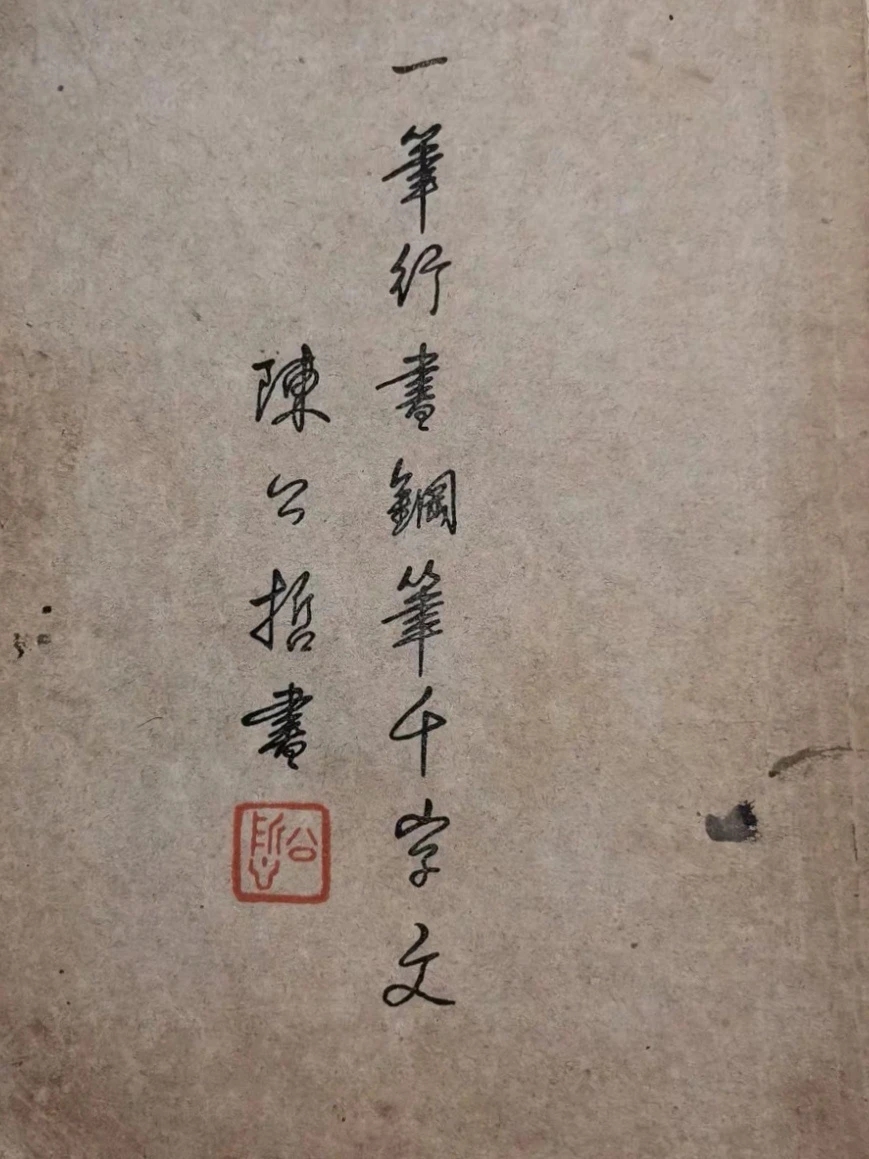 一筆行書鋼筆千字文
陳公哲書
公悊